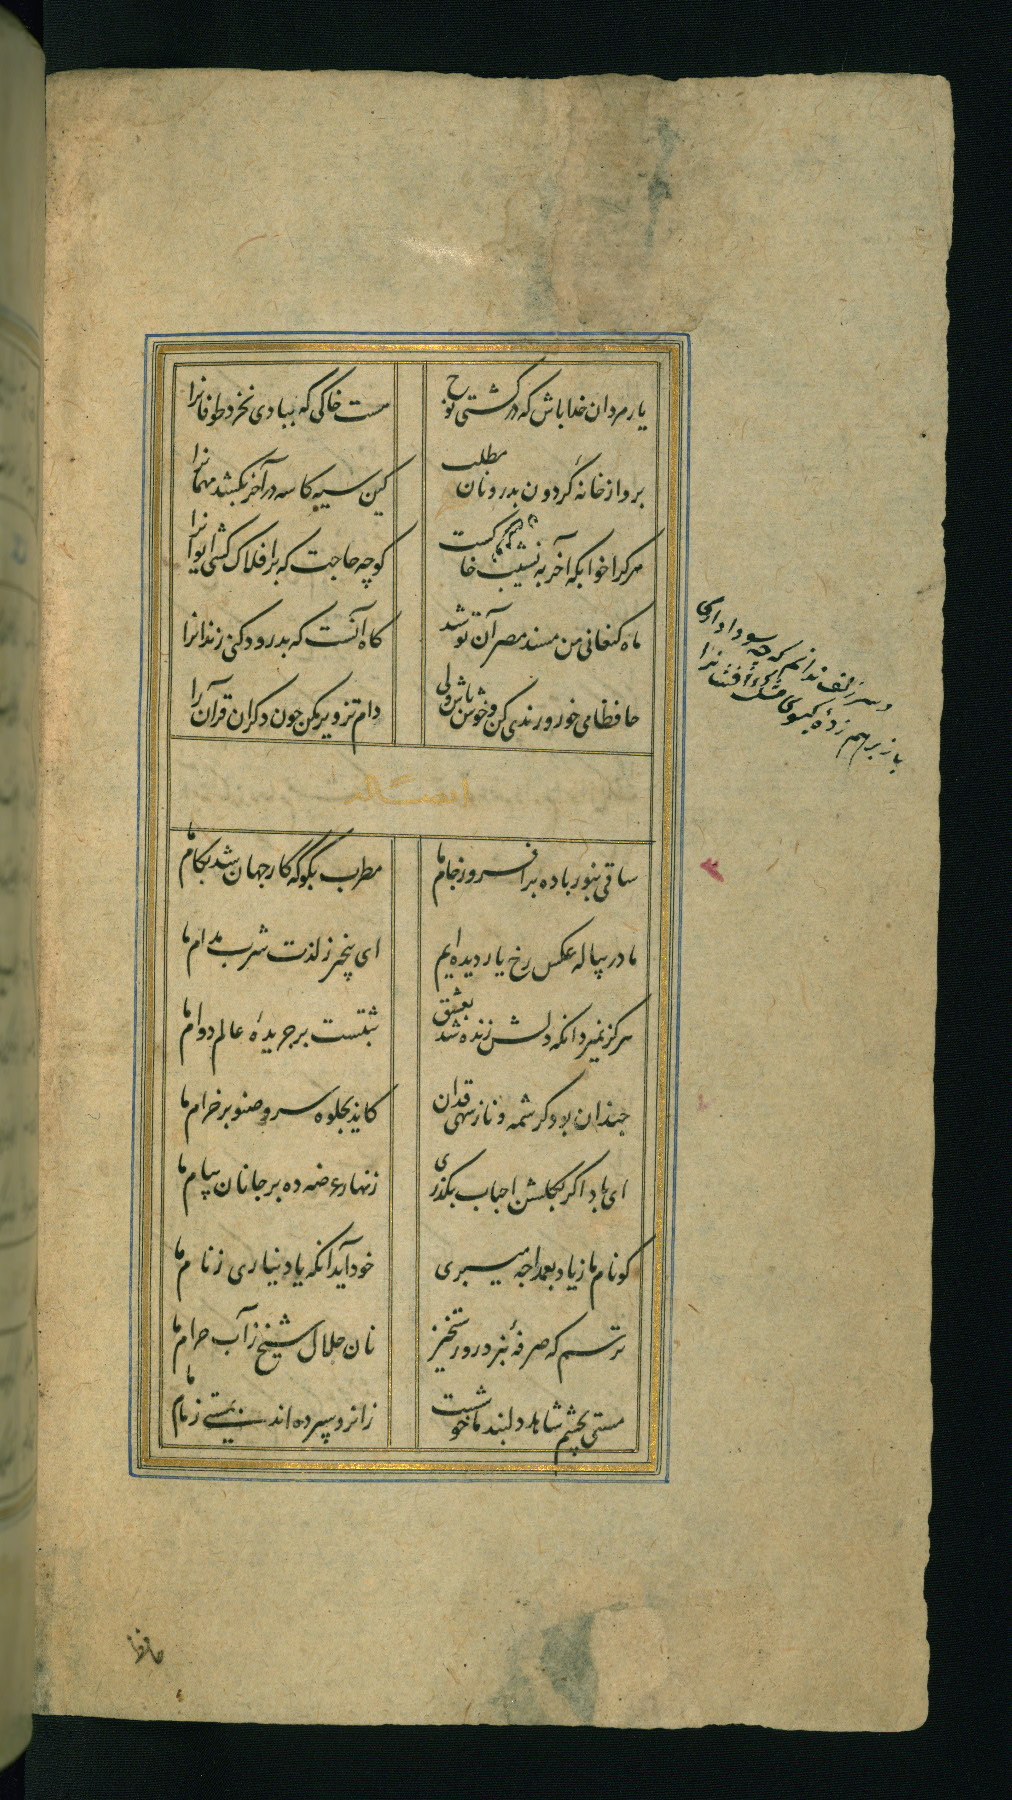 یار مردان خدا باش که در کشتی نوح
هست خاکی که ببادی نخرد طوفانرا
برو از خانهٔ گردون بدر و نان مطلب
کین سیه کاسه در آخر بکشد مهمانرا
هر کرا خوابکه آخر به نشیب خاکست
کو چه حاجت که بر افلاک کشی ایوانرا
ماه کنعانی من مسند مصر آن تو شد
کاه آنست که بدرود کنی زندانرا
حافظا می خور و رندی کن و خوش باش ولی
دام تزویر مکن چون دکران قرآن را
در سر زلف ندانم که چه سودا داری
باز بر هم زدهٔ کیسوی مشک افشانرا
ساقی بنور باده بر افروز جام ما
مطرب بگو که کار جهان شد بکام ما
ما در پیاله عکس رخ یار دیده‌ایم
ای بیخبر ز لذت شرب مدام ما
هرکز نمیرد انکه دلش زنده شد بعشق
ثبتست بر جریدهٔ عالم دوام ما
چندان بود کرشمه و ناز سهی قدان
کاید بجلوه سرو صنوبر خرام ما
ای باد اکر بکلشن احباب بکذری
زنهار عرضه ده بر جانان پیام ما
کو نام ما ز یاد بعمدا چه میبری
خود آید انکه یاد نیاری ز نام ما
ترسم که صرفهٔ نبرد روز رستخیز
نان حلال شیخ ز آب حرام ما
مستی بچشم شاهد دلبند ما خوشست
زانرو سپرده‌اند بمستی زمام ما
حافظ